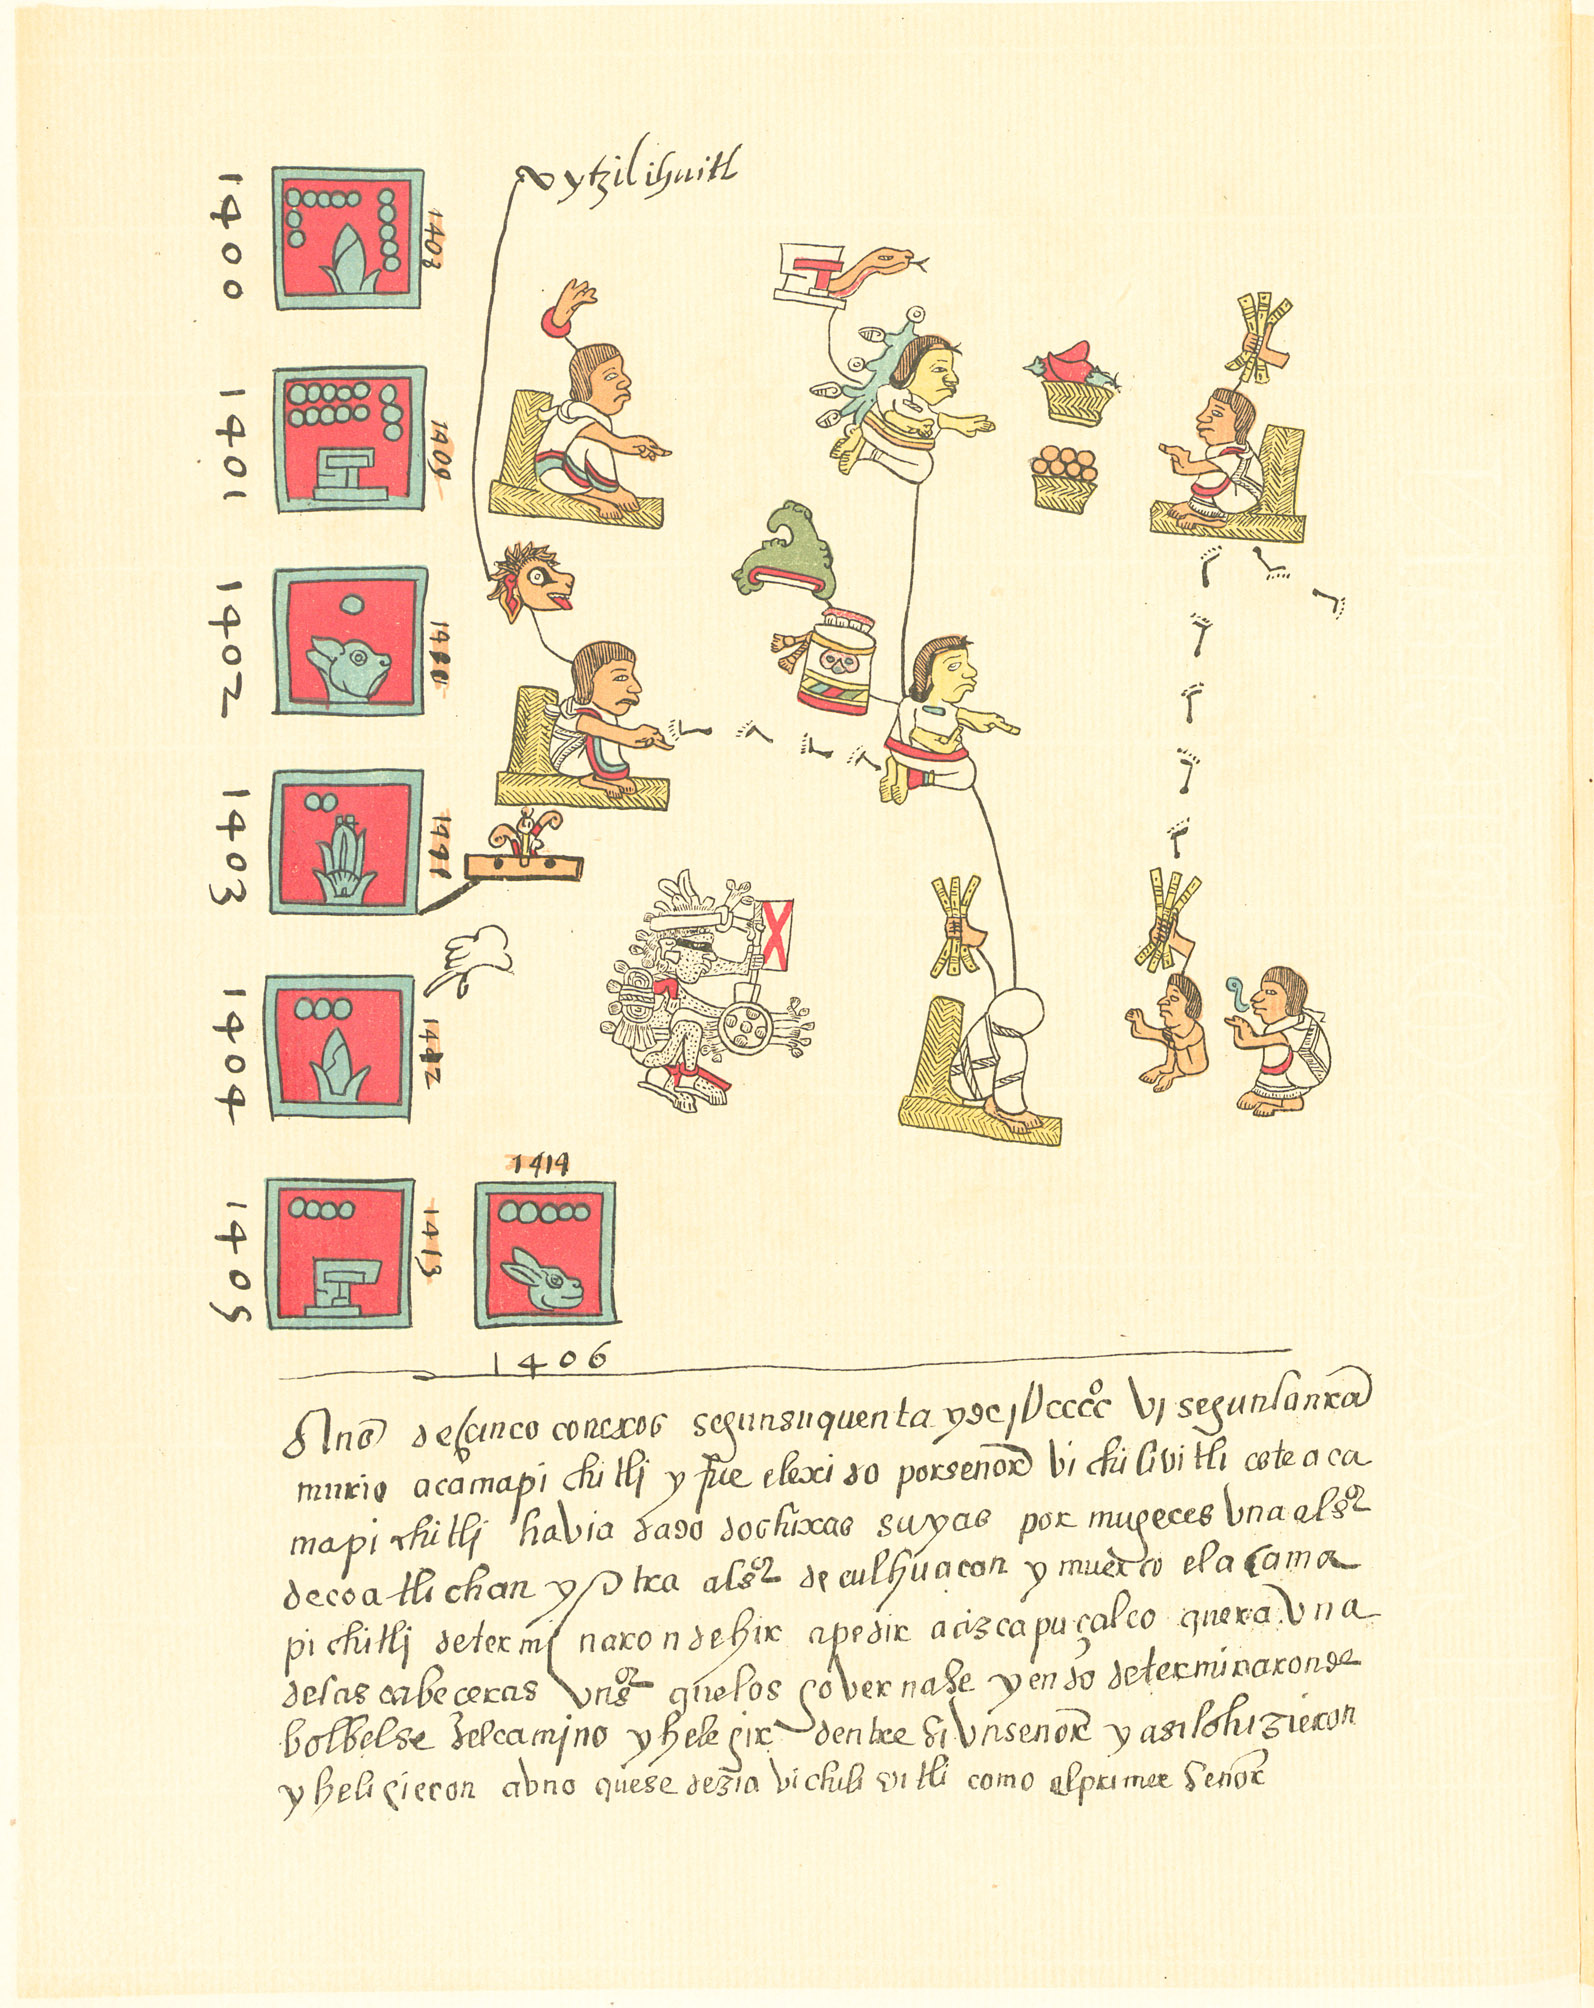 1400
1403
1401
1409
1402
1403
1404
1405
1413
1414
1406
Huytzilihuitl
Año de cinco conexos segun su quenta y de jUcccc° Vj segun la nra
murio acamapichitlj y fue elexido por señor Vichilivitli este aca
mapichitlj havia dado dos hixas suyas por mugeres Vna al sor
de coatlichan y otra al sor de culhuacan y muerto el acama
pichitlj determinaron de hir a pedir a azcapuçalco quera Vna
de las cabeceras Vn sor que los governase y endo determinaron de
bolbelse del camino y helegir dentre si Vn señor y asi lo hizieron
y heligieron a bno que se dezia Vichilivitli como el primer señor